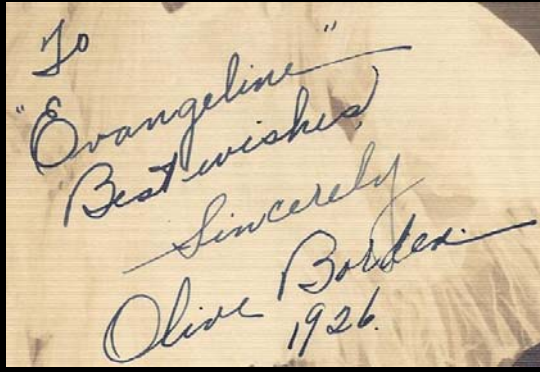 To
"Evangeline"
Best wishes,
Sincerely
Olive Borden.
1926.